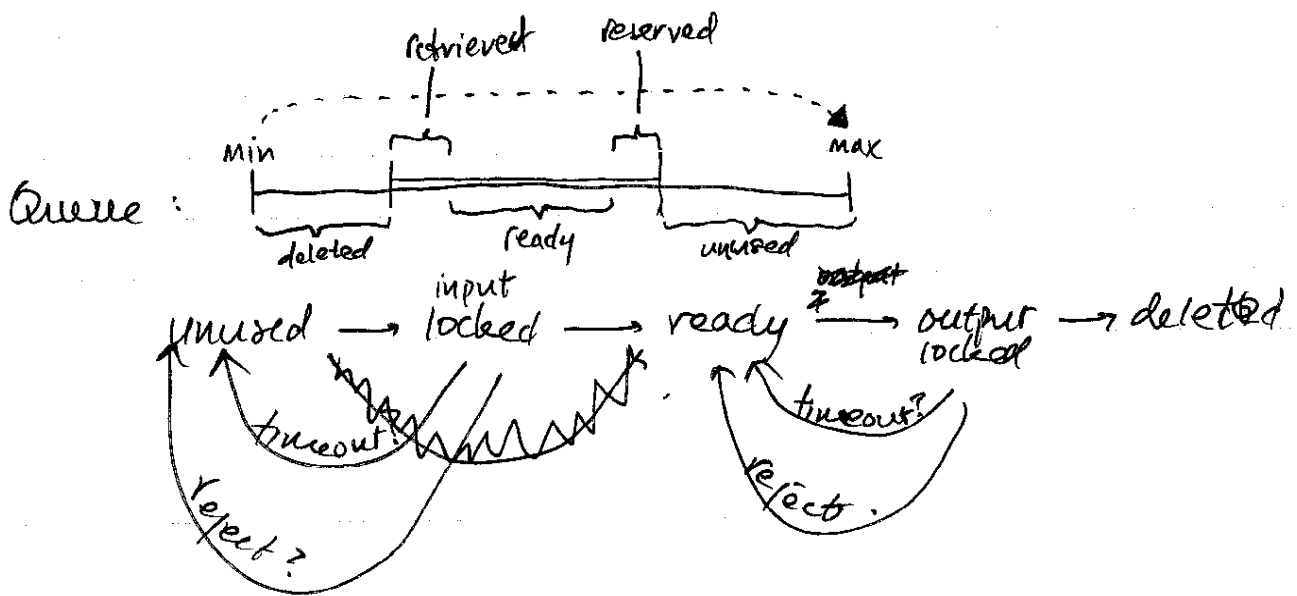 retrieved reserved
Min max
Queue :
deleted ready unused
unused → input locked → ready → output locked → deleted
timeout? timeout?
reject? reject.